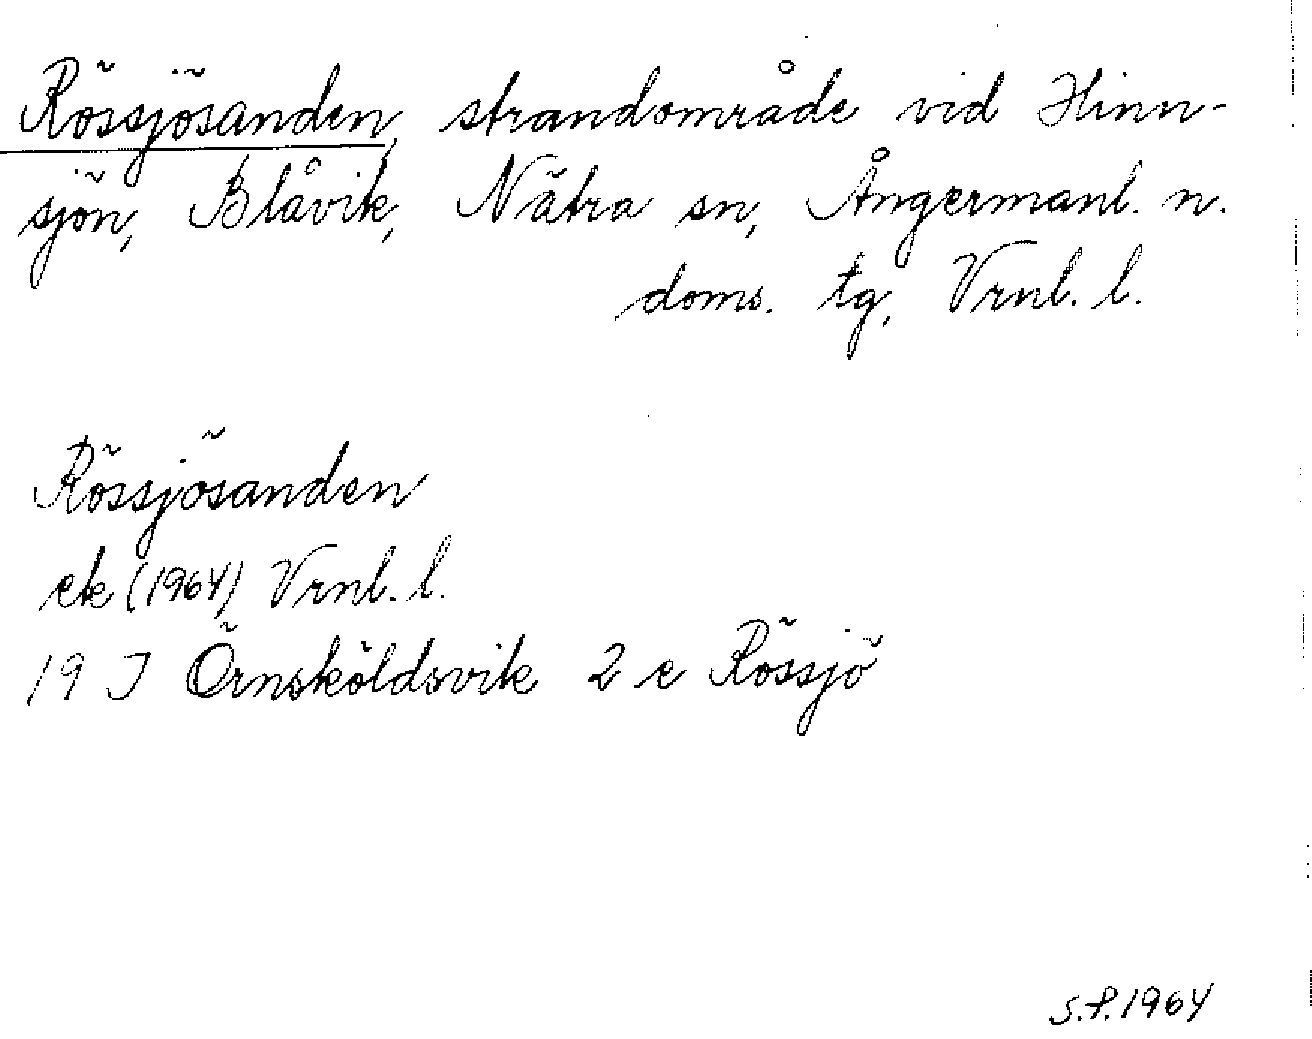 Rössjösanden, strandområde vid Hinn-
sjön, Blåvik, Nätra sn, Ångermanl. n.
doms. tg, Vrnl. l.
Rössjösanden
ek (1964) Vrnl. l.
19 J Örnsköldsvik 2 e Rössjö
S.P. 1964